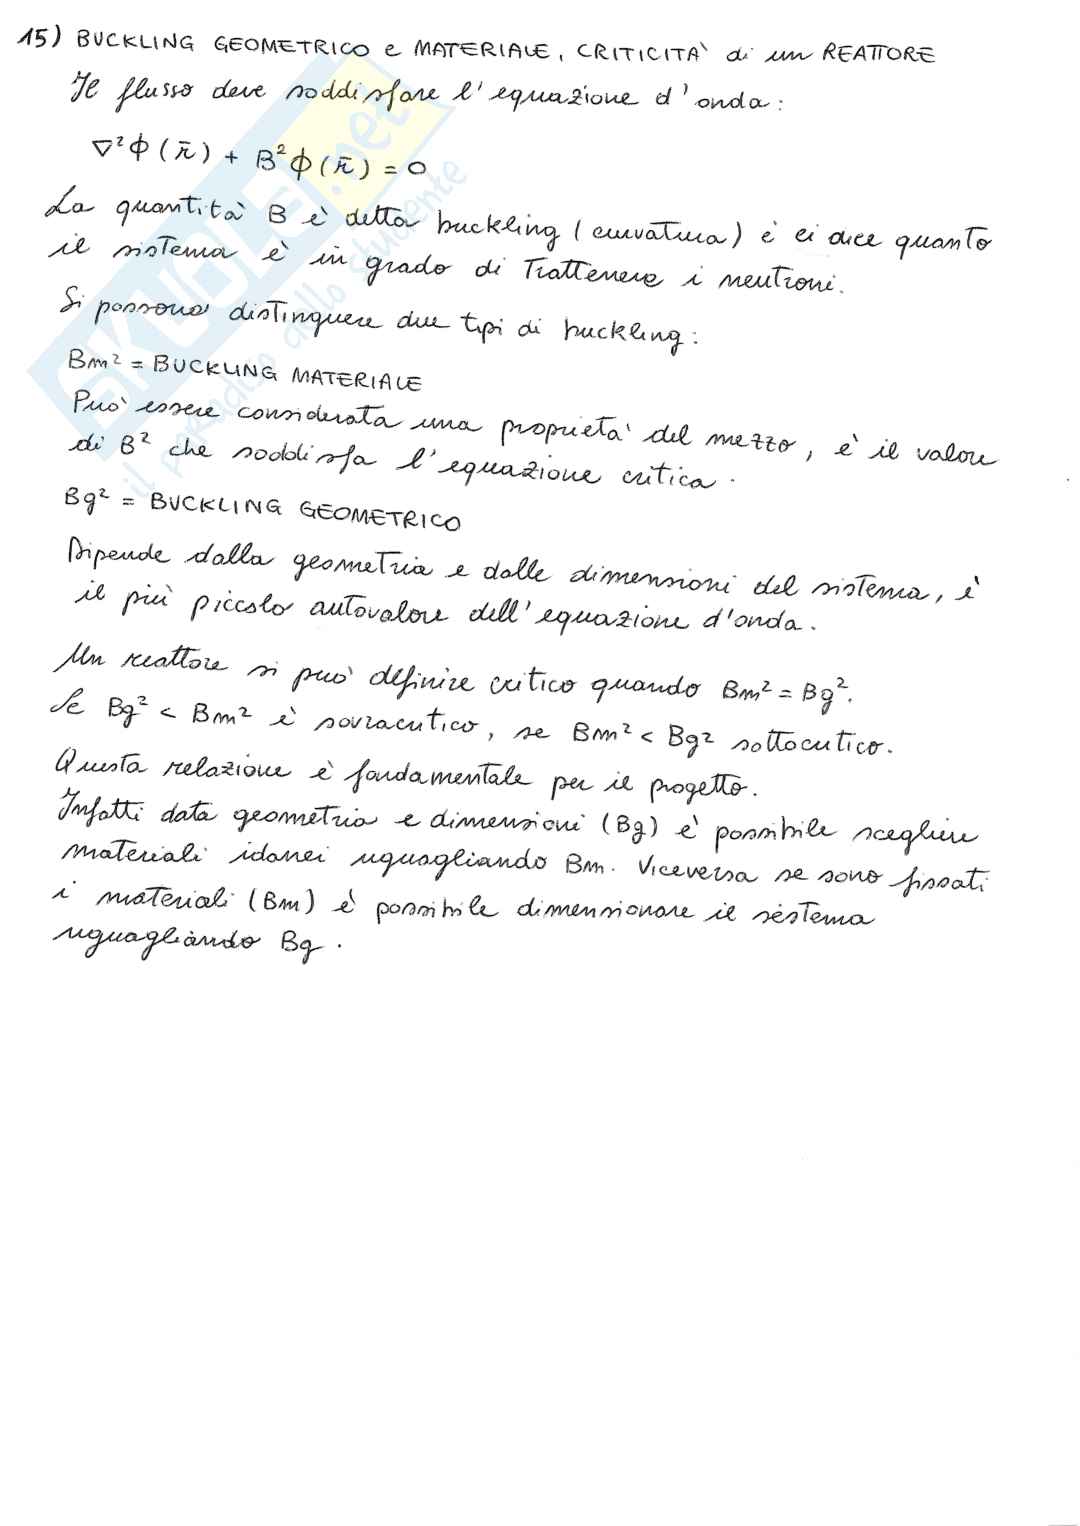 15) BUCKLING GEOMETRICO e MATERIALE, CRITICITÀ di un REATTORE
Il flusso deve soddisfare l'equazione d'onda:
∇²ϕ(r̄) + B²ϕ(r̄) = 0
La quantità B è detta buckling (curvatura) è ci dice quanto
il sistema è in grado di trattenere i neutroni.
Si possono distinguere due tipi di buckling:
Bm² = BUCKLING MATERIALE
Può essere considerata una proprietà del mezzo, è il valore
di B² che soddisfa l'equazione critica.
Bg² = BUCKLING GEOMETRICO
Dipende dalla geometria e dalle dimensioni del sistema, è
il più piccolo autovalore dell'equazione d'onda.
Un reattore si può definire critico quando Bm² = Bg².
Se Bg² < Bm² è sovracritico, se Bm² < Bg² sottocritico.
Questa relazione è fondamentale per il progetto.
Infatti data geometria e dimensioni (Bg) è possibile scegliere
materiali idonei uguagliando Bm. Viceversa se sono fissati
i materiali (Bm) è possibile dimensionare il sistema
uguagliando Bg.
SKUOLA.net
il paradiso dello studente